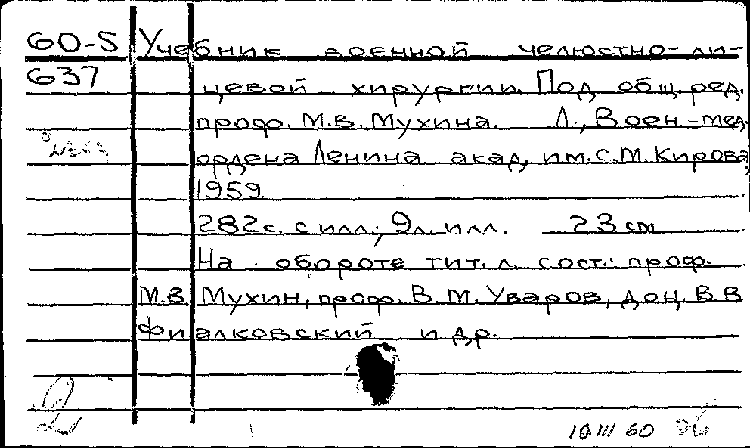 60-5 Учебник военной челюстно-ли-
637 цевой хирургии. Под общ. ред.
проф. М.В. Мухина. Л., Воен.-мед.
ордена Ленина акад. им. С.М. Кирова,
1959.
282с. с илл.; 9л. илл. 23 см
На обороте тит. л. сост.: проф.
М.В. Мухин, проф. В.М. Уваров, доц. В.В.
Фиалковский и др.
2
19 III 60